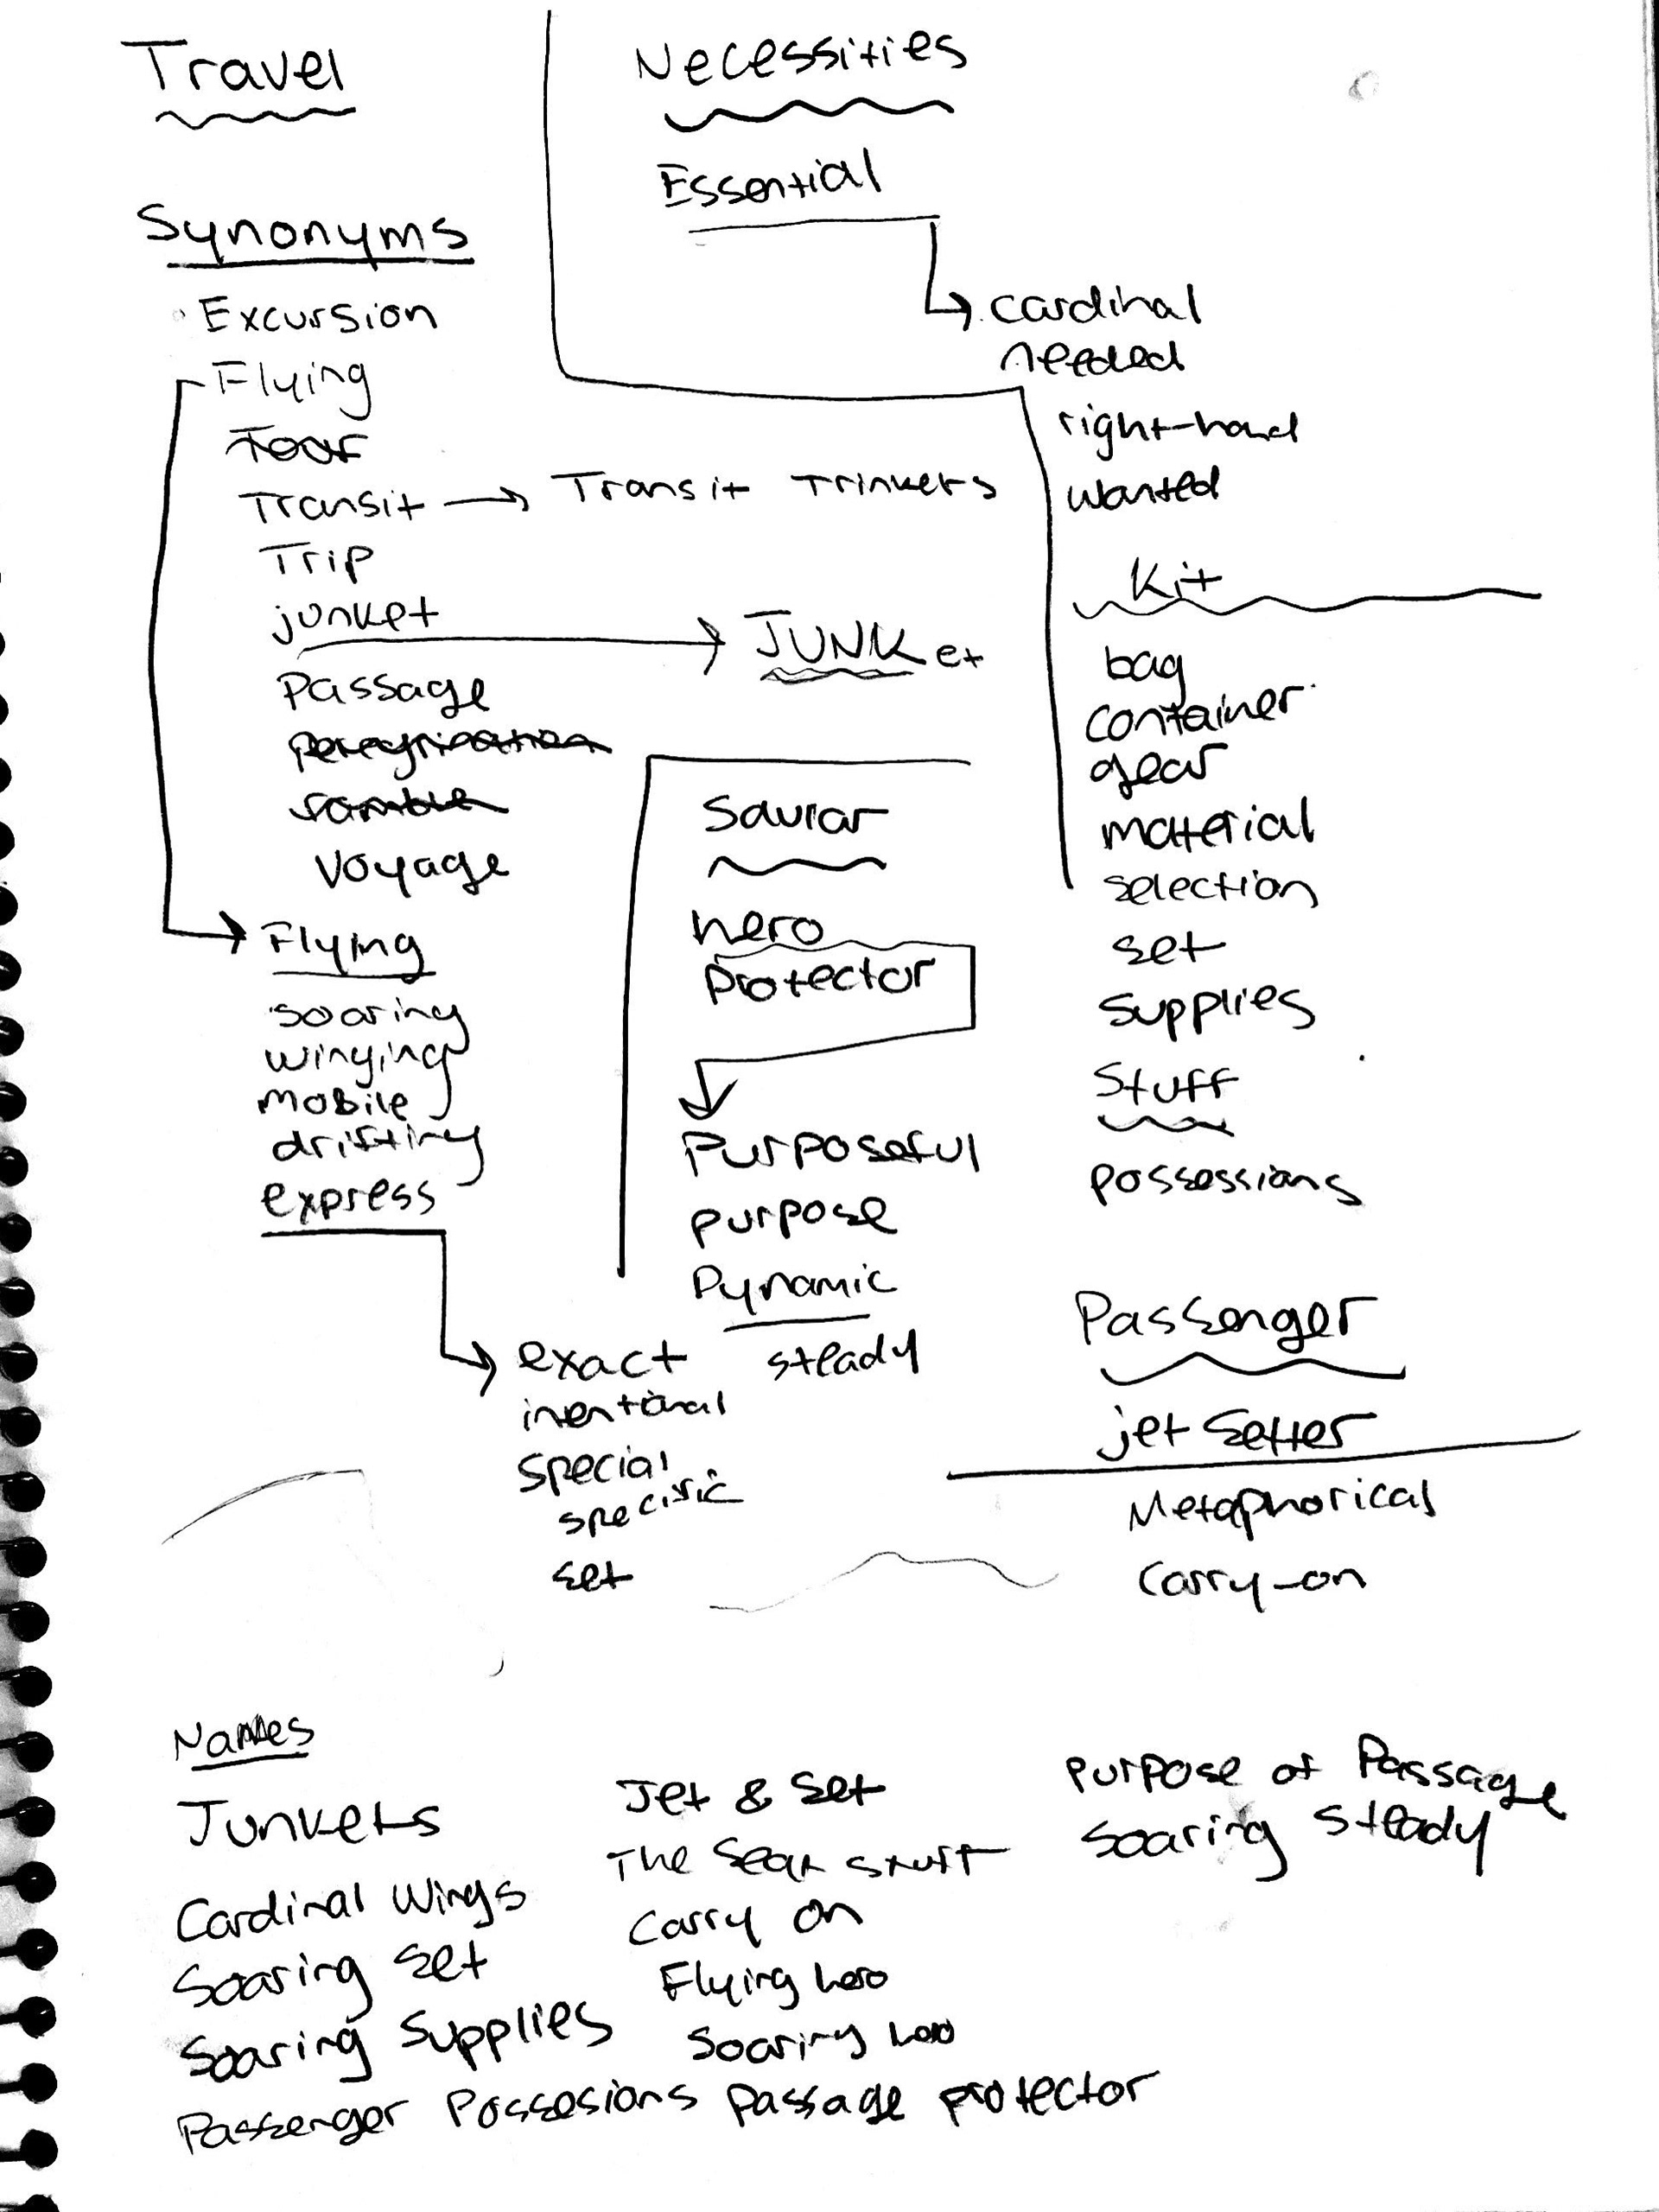 Travel
Synonyms
Excursion
Flying
Tour
Transit → Transit Trinkets
Trip
junket → JUNKet
Passage
peregrination
ramble
Voyage
Flying
soaring
winging
mobile
drifting
express
exact
intentional
special
specific
set
Necessities
Essential
cardinal
needed
right-hand
wanted
Kit
bag
container
gear
material
selection
set
supplies
stuff
possessions
Savior
hero
protector
Purposeful
purpose
Dynamic
steady
Passenger
jet setter
Metaphorical
Carry-on
Names
Junkets
Cardinal Wings
Soaring Set
Soaring Supplies
Passenger Possesions
Jet & Set
The Seat Stuff
Carry on
Flying hero
Soaring hero
Passage protector
Purpose of Passage
Soaring Steady